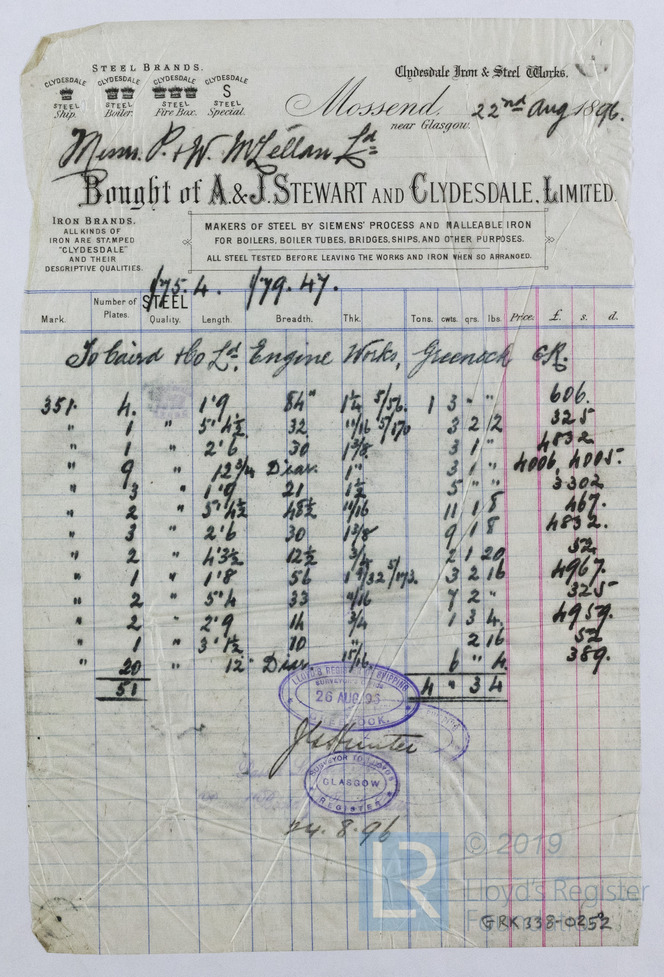 STEEL BRANDS.
CLYDESDALE STEEL Ship.
CLYDESDALE STEEL Boiler.
CLYDESDALE STEEL Fire Box.
CLYDESDALE S STEEL Special.
Clydesdale Iron & Steel Works.
Mossend, near Glasgow. 22nd Aug 1896.
Messrs. P. & W. McLellan Ld
Bought of A. & J. STEWART AND CLYDESDALE, LIMITED.
IRON BRANDS.
ALL KINDS OF
IRON ARE STAMPED
"CLYDESDALE"
AND THEIR
DESCRIPTIVE QUALITIES.
MAKERS OF STEEL BY SIEMENS' PROCESS AND MALLEABLE IRON
FOR BOILERS, BOILER TUBES, BRIDGES, SHIPS, AND OTHER PURPOSES.
ALL STEEL TESTED BEFORE LEAVING THE WORKS AND IRON WHEN SO ARRANGED.
1/75.4. 1/79.47.
STEEL
Mark. Number of Plates. Quality. Length. Breadth. Thk. Tons. cwts. qrs. lbs. Price. £. s. d.
To Caird & Co Ld. Engine Works, Greenock CR.
351. 4. " 1'9 84" 1 1/4 5/56. 1 3 " " 606.
" 1 " 5'4 1/2 32 11/16 5/170 3 2 2 325
" 1 " 2'6 30 1 3/8. 3 1 " 4832
" 9 " 12 3/4 Diar. 1" 3 1 " 4006, 4005.
" 3 " 1'9 21 1 1/2 5 " " 3302
" 2 " 5'4 1/2 48 1/2 11/16 11 1 8 467.
" 3 " 2'6 30 1 3/8 9 1 8 4832.
" 2 " 4'3 1/2 12 1/2 3/4 2 1 20 52
" 1 " 1'8 56 5/173. 3 2 16 4967.
" 2 " 5'4 33 11/16 7 2 " 325
" 2 " 2'9 14 3/4 1 3 4. 4959.
" 1 " 3'1 1/2 10 " 2 16 52
" 20 " 12" Diar. 15/16. 6 " 4. 389.
51 4 " 3 4
LLOYD'S REGISTER OF SHIPPING
26 AUG. 96
GREENOCK.
Jas Hunter
SURVEYOR TO LLOYDS
GLASGOW
REGISTER
24.8.96
LR
© 2019
Lloyd's Register
Foundation
GRK338-0252